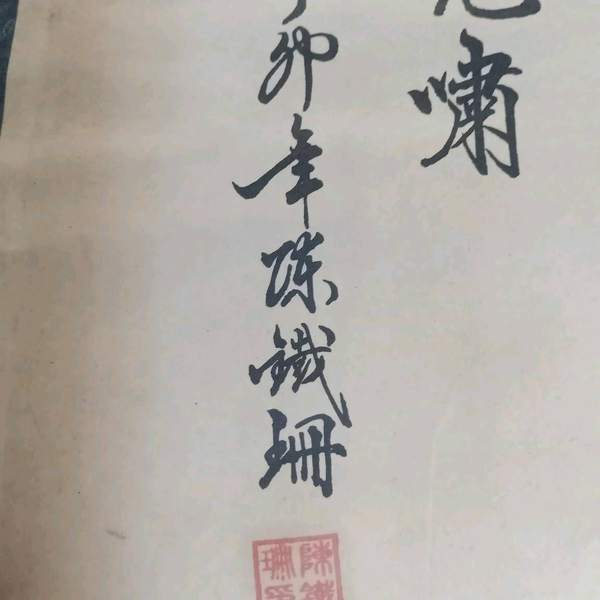 嘯
卯年陳鐵珊
陳鐵
珊